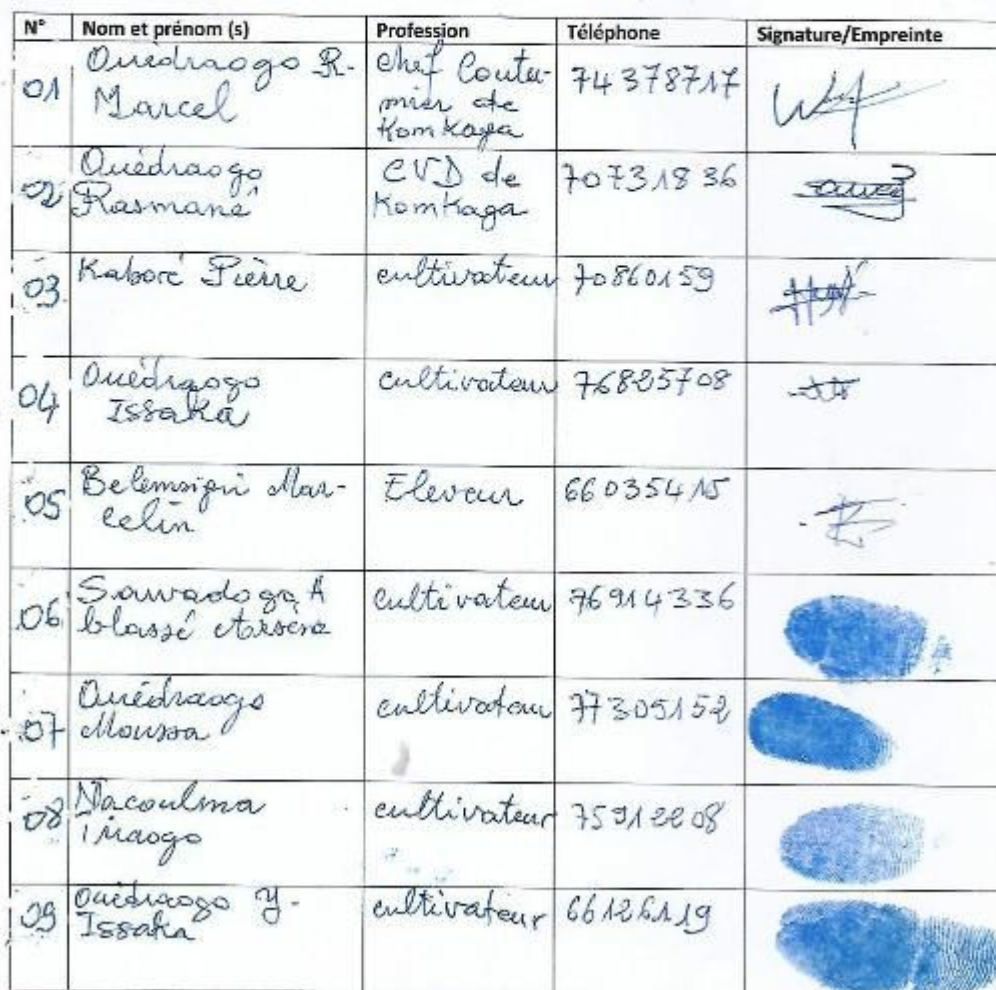 N° Nom et prénom (s) Profession Téléphone Signature/Empreinte
01 Ouédraogo R. Marcel Chef Coutu-mier de Komkaga 74378717
02 Ouédraogo Rasmané CVD de Komkaga 70731836
03 Kaboré Pierre cultivateur 70860159
04 Ouédraogo Issaka cultivateur 76825708
05 Belemsigri Mar-celin Eleveur 66035415
06 Sawadogo A blassé Arsène cultivateur 76914336
07 Ouédraogo Moussa cultivateur 77305152
08 Nacoulma Iraogo cultivateur 75912208
09 Ouédraogo Y. Issaka cultivateur 66126119